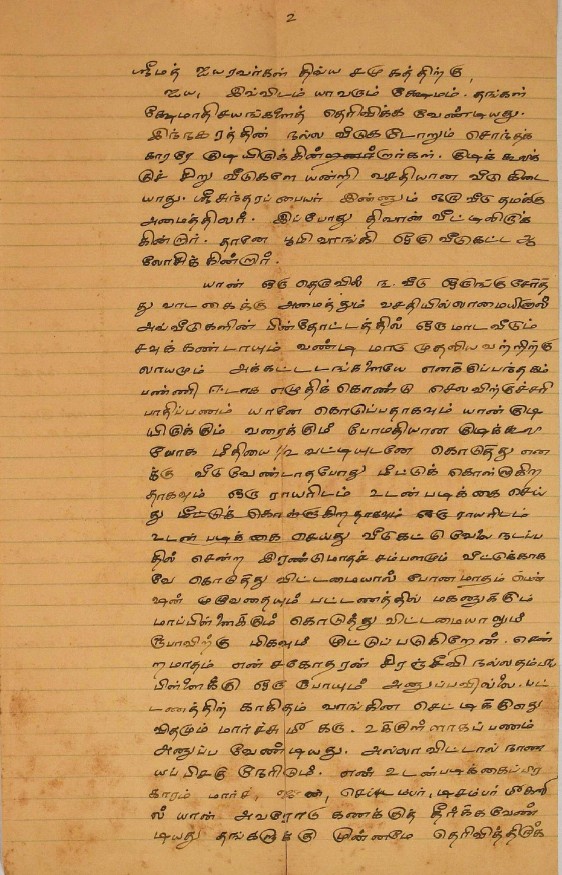 2
ஸ்ரீமத் ஐயரவர்கள் திவ்ய சமுகத்திற்கு,
ஐய, இவ்விடம் யாவரும் க்ஷேமம். தங்கள்
க்ஷேமாதிசயங்களைத் தெரிவிக்க வேண்டியது.
இந்நகரத்தின் நல்ல வீடுகடோறும் சொந்தக்
காரரே குடியிருக்கின்றார்கள். குடிக்
டுச் சிறு வீடுகளே யன்றி வசதியான வீடு கிடை
யாது. ஸ்ரீ சுந்தரப்பையர் இன்னும் ஒரு வீடு தமக்கு
அமைத்திலர். இப்போது திவான் வீட்டிலிருக்
கின்றார். தானே பூமி வாங்கி ஒரு வீடுகட்ட ஆ
லோசிக்கின்றார்.
யான் ஒரு தெருவில் ந. வீடு ஒருங்கு சேர்த்
து வாடகைக்கு அமைத்தும் வசதியில்லாமையினால்
அவ்வீடுகளின் பின்தோட்டத்தில் ஒரு மாட வீடும்
சவுக்கண்டாயும் வண்டி மாடு முதலியவற்றிற்கு
லாயமும் அக்கட்டடங்களையே எனக்குப்பந்தகம்
பண்ணி ஈடாக எழுதிக்கொண்டு செலவிற்குச்சரி
பாதிப்பணம் யானே கொடுப்பதாகவும் யான் குடி
யிருக்கும் வரைக்கும் போமதியான குடிக்கூலி
போக மீதியை 1/2 வட்டியுடனே கொடுத்து என
க்கு வீடு வேண்டாதபோது மீட்டுக் கொள்ளுகிற
தாகவும் ஒரு ராயரிடம் உடன்படிக்கை செய்
து மீட்டுக் கொள்ளுகிறதாகவும் ஒரு ராயரிடம்
உடன் படிக்கை செய்து வீடுகட்டு வேலை நடப்ப
தில் சென்ற இரண்டுமாதச் சம்பளமும் வீட்டுக்காக
வே கொடுத்து விட்டமையால் போனமாதம் பென்
ஷன் முழுவதையும் பட்டணத்தில் மகனுக்கும்
மாப்பிள்ளைக்கும் கொடுத்து விட்டமையாலும்
ரூபாவிற்கு மிகவும் முட்டுப்படுகிறேன். சென்
ற மாதம் என் சகோதரன் சிரஞ்சீவி நல்லதம்பிப்
பிள்ளைக்கு ஒரு ரூபாயும் அனுப்பவில்லை. பட்
டணத்திற் காகிதம் வாங்கின செட்டிக்குனது
விதமும் மார்ச்சு மீ கரு. உக்குள்ளாகப் பணம்
அனுப்ப வேண்டியது. அல்லாவிட்டால் நாண
யப்பிசகு நேரிடும். என் உடன்படிக்கைப்பிர
காரம் மார்ச, ஜூன், செப்டம்பர், டிசம்பர் மீகளி
ல் யான் அவரோடு கணக்குத் தீர்க்கவேண்
டியது தங்களுக்கு முன்னமே தெரிவித்திருக்